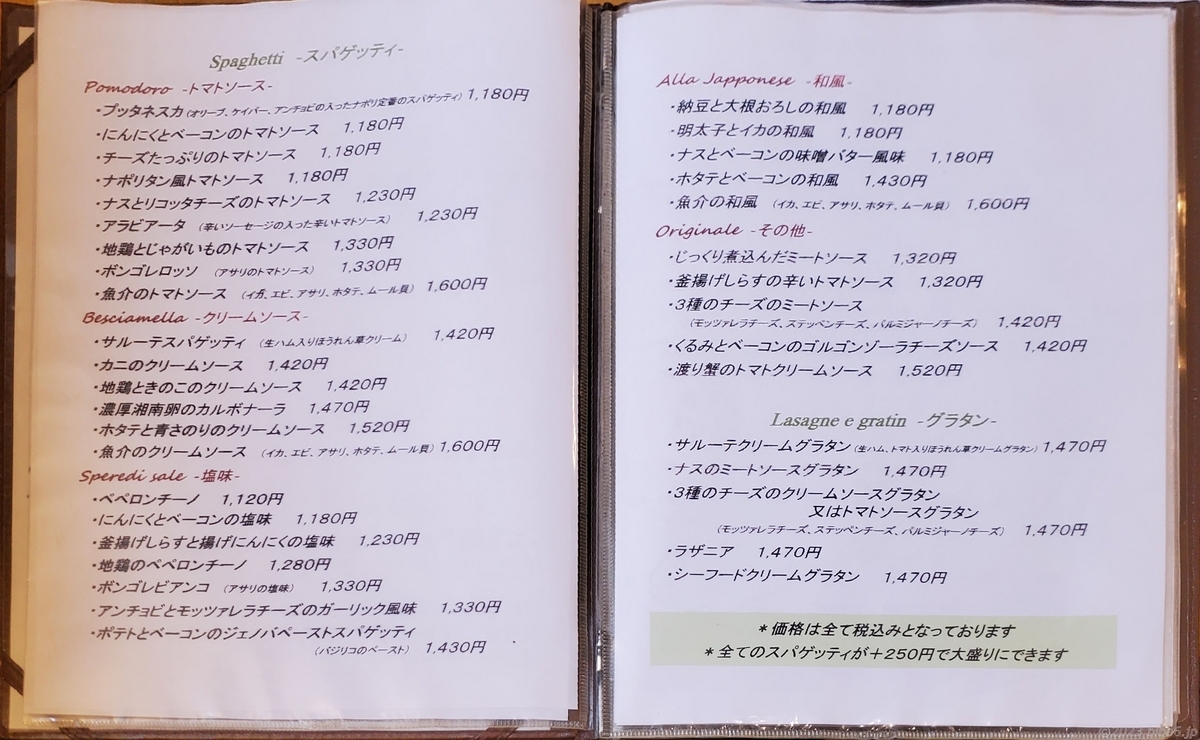 Spaghetti -スパゲッティ-
Pomodoro -トマトソース-
・プッタネスカ（オリーブ、ケイパー、アンチョビの入ったナポリ定番のスパゲッティ） 1,180円
・にんにくとベーコンのトマトソース 1,180円
・チーズたっぷりのトマトソース 1,180円
・ナポリタン風トマトソース 1,180円
・ナスとリコッタチーズのトマトソース 1,230円
・アラビアータ （辛いソーセージの入った辛いトマトソース） 1,230円
・地鶏とじゃがいものトマトソース 1,330円
・ボンゴレロッソ （アサリのトマトソース） 1,330円
・魚介のトマトソース （イカ、エビ、アサリ、ホタテ、ムール貝） 1,600円
Besciamella -クリームソース-
・サルーテスパゲッティ （生ハム入りほうれん草クリーム） 1,420円
・カニのクリームソース 1,420円
・地鶏ときのこのクリームソース 1,420円
・濃厚湘南卵のカルボナーラ 1,470円
・ホタテと青さのりのクリームソース 1,520円
・魚介のクリームソース （イカ、エビ、アサリ、ホタテ、ムール貝） 1,600円
Speredi sale -塩味-
・ペペロンチーノ 1,120円
・にんにくとベーコンの塩味 1,180円
・釜揚げしらすと揚げにんにくの塩味 1,230円
・地鶏のペペロンチーノ 1,280円
・ボンゴレビアンコ （アサリの塩味） 1,330円
・アンチョビとモッツァレラチーズのガーリック風味 1,330円
・ポテトとベーコンのジェノバペーストスパゲッティ
（バジリコのペースト） 1,430円
Alla Japponese -和風-
・納豆と大根おろしの和風 1,180円
・明太子とイカの和風 1,180円
・ナスとベーコンの味噌バター風味 1,180円
・ホタテとベーコンの和風 1,430円
・魚介の和風 （イカ、エビ、アサリ、ホタテ、ムール貝） 1,600円
Originale -その他-
・じっくり煮込んだミートソース 1,320円
・釜揚げしらすの辛いトマトソース 1,320円
・3種のチーズのミートソース
（モッツァレラチーズ、ステッペンチーズ、パルミジャーノチーズ） 1,420円
・くるみとベーコンのゴルゴンゾーラチーズソース 1,420円
・渡り蟹のトマトクリームソース 1,520円
Lasagne e gratin -グラタン-
・サルーテクリームグラタン（生ハム、トマト入りほうれん草クリームグラタン） 1,470円
・ナスのミートソースグラタン 1,470円
・3種のチーズのクリームソースグラタン
又はトマトソースグラタン
（モッツァレラチーズ、ステッペンチーズ、パルミジャーノチーズ） 1,470円
・ラザニア 1,470円
・シーフードクリームグラタン 1,470円
＊価格は全て税込みとなっております
＊全てのスパゲッティが＋250円で大盛りにできます